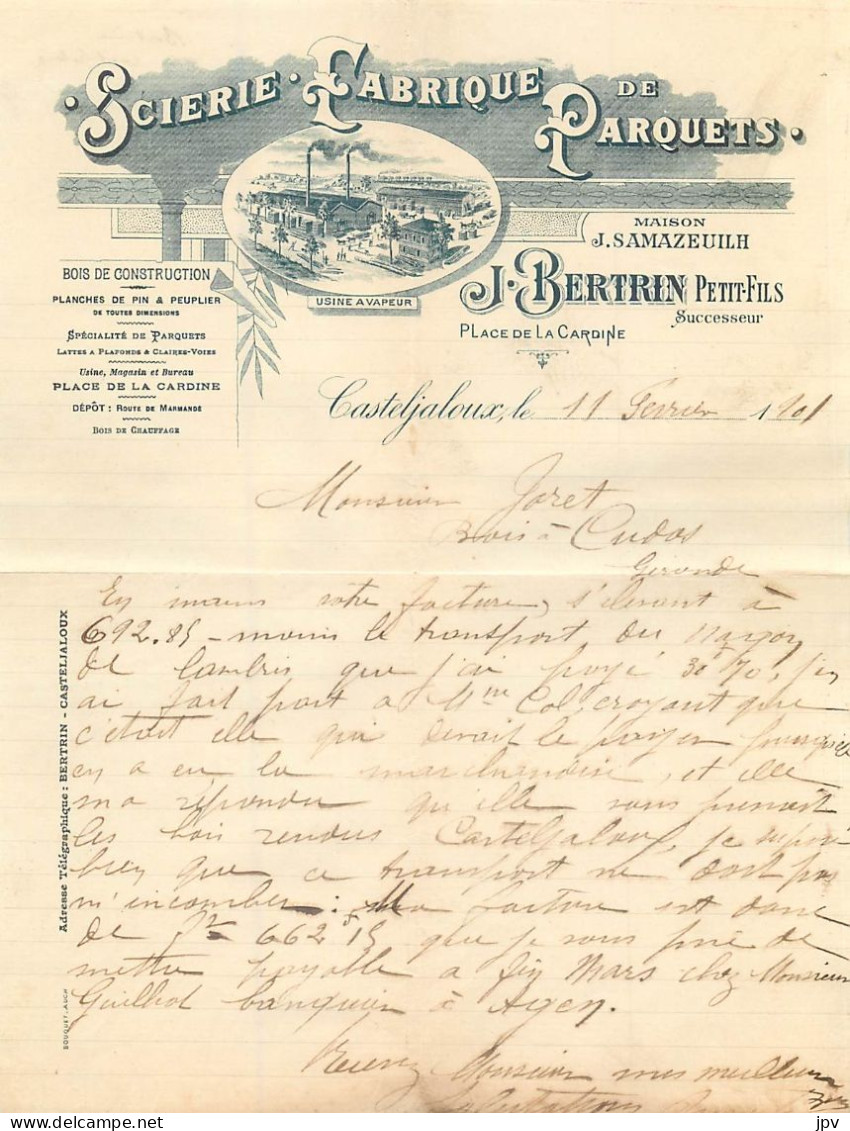 SCIERIE · FABRIQUE DE PARQUETS ·
USINE A VAPEUR
MAISON
J. SAMAZEUILH
J. BERTRIN PETIT-FILS
Successeur
PLACE DE LA CARDINE
BOIS DE CONSTRUCTION
PLANCHES DE PIN & PEUPLIER
DE TOUTES DIMENSIONS
SPÉCIALITÉ DE PARQUETS
LATTES A PLAFONDS & CLAIRES-VOIES
Usine, Magasin et Bureau
PLACE DE LA CARDINE
DÉPÔT : ROUTE DE MARMANDE
BOIS DE CHAUFFAGE
Casteljaloux, le 11 Fevrier 1901
Monsieur Joret
Bois à Cudos
Gironde
En mains votre facture, s'elevant à
692.85 - moins le transport du wagon
de lambris que j'ai payé 30f70, j'en
ai fait part a Mme Col, croyant que
c'était elle qui devait le payer puisqu'elle
en a eu la marchandise, et elle
m'a répondu qu'elle vous prenait
les bois rendus Casteljaloux, je suppose
bien que ce transport ne doit pas
m'incomber : Ma facture est donc
de 662f15 que je vous prie de
mettre payable a fin Mars chez Monsieur
Guilhot banquier à Agen.
Recevez Monsieur mes meilleures
salutations
Adresse Télégraphique : BERTRIN - CASTELJALOUX
BOUQUET, AUCH
jpv